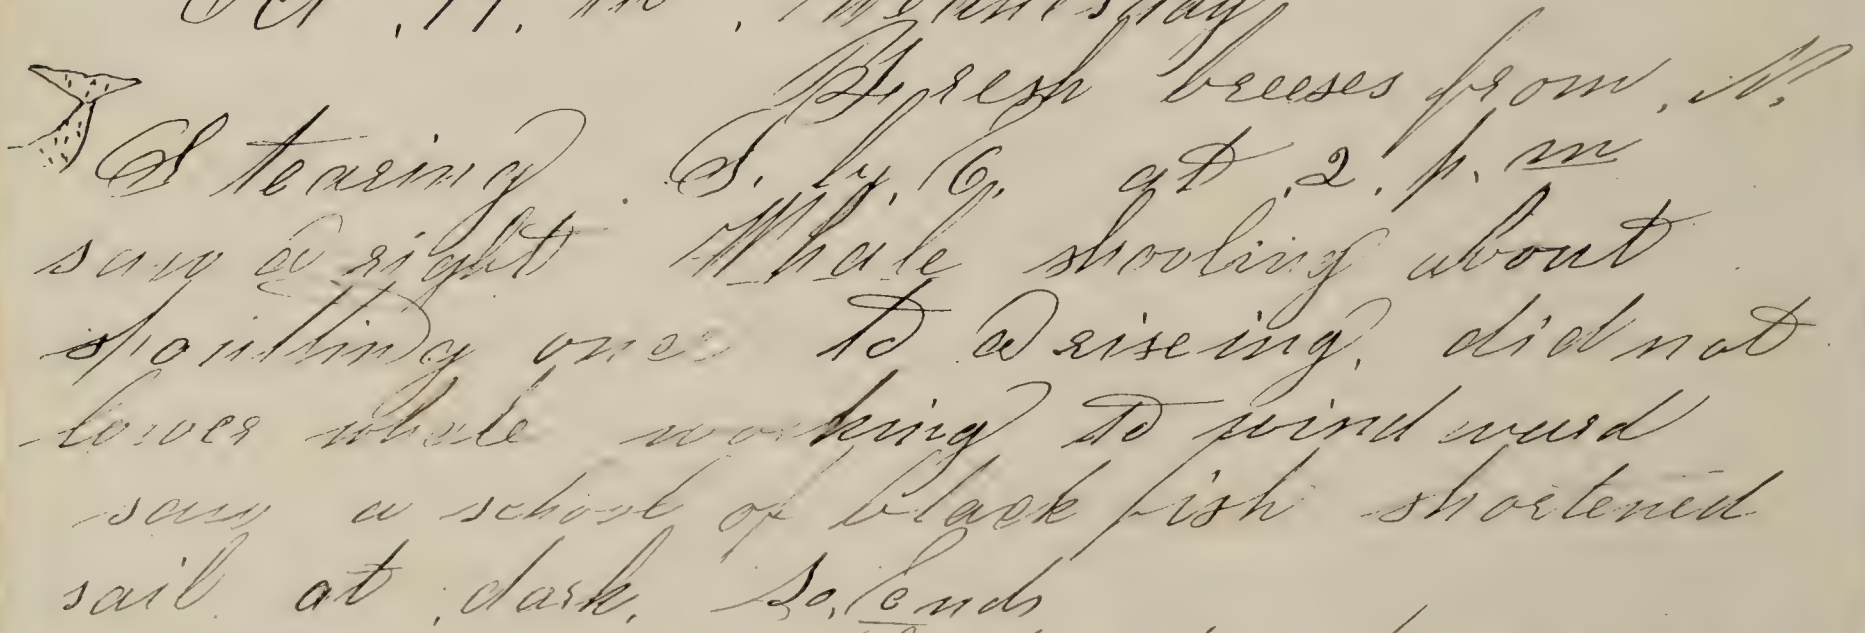 Oct. 17. th. Wednesday
Fresh breeses from. N.
Stearing. S. by. E. at. 2. p. m
saw a right Whale shooling about
spoutting once to a riseing. did not
lower whale working to wind ward
saw a school of black fish shortened
sail at dark. So. ends